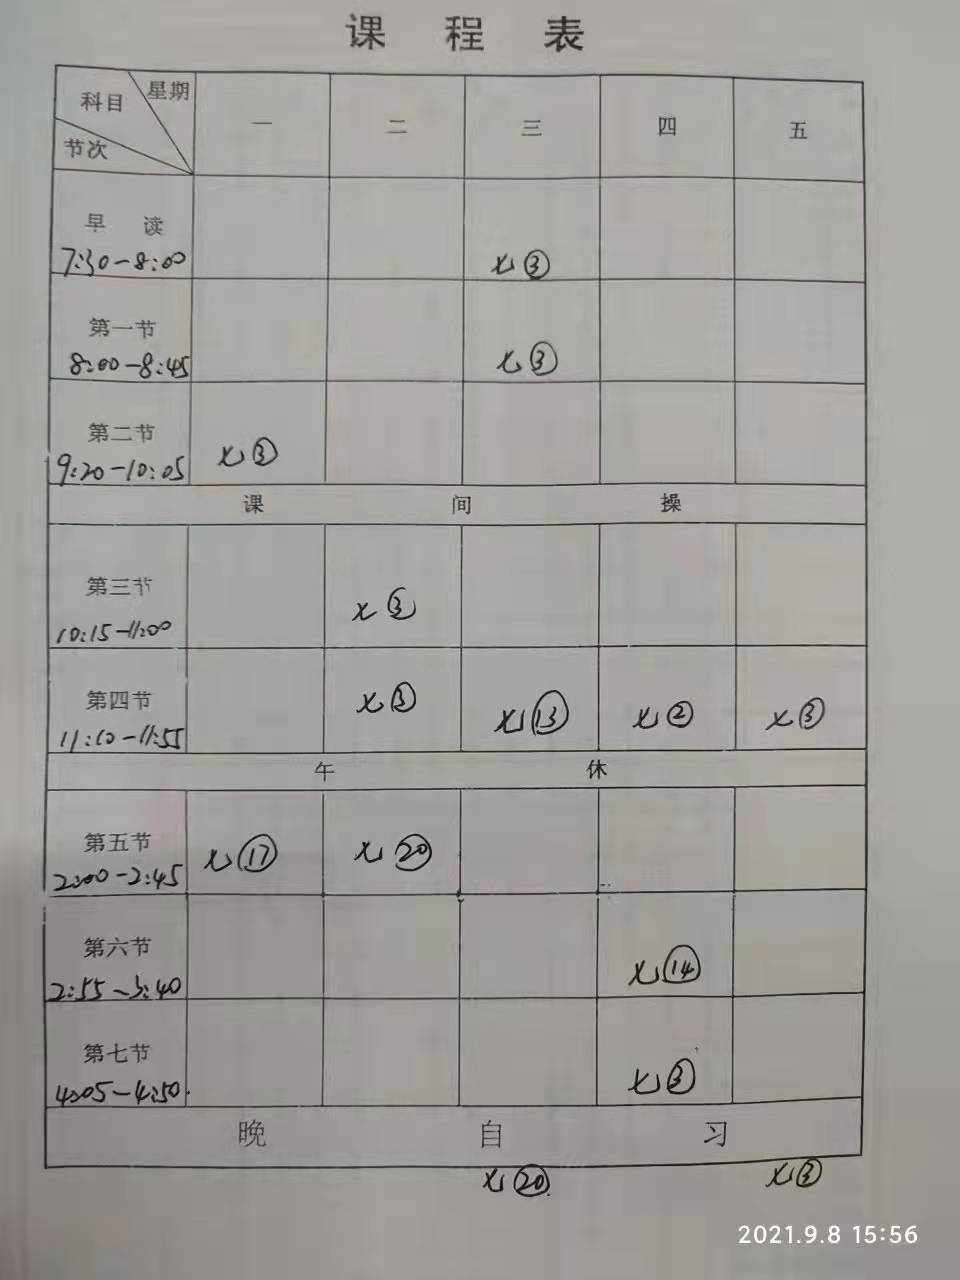 课 程 表
星期
科目
节次
一 二 三 四 五
早 读
7:30-8:00
七③
第一节
8:00-8:45
七③
第二节
9:20-10:05
七③
课 间 操
第三节
10:15-11:00
七③
第四节
11:10-11:55
七③ 七⑬ 七② 七③
午 休
第五节
2:00-2:45
七⑰ 七⑳
第六节
2:55-3:40
七⑭
第七节
4:05-4:50
七③
晚 自 习
七⑳ 七③
2021.9.8 15:56